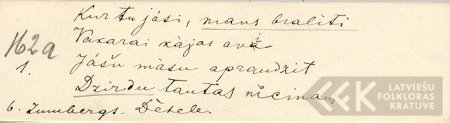 Kur tu jāsi, mans bralīti
162a
Vakarai kājas avā
1.
Jāšu māsu apraudzīt
Dzirdu tautas nīcinam
6. Zunnbergs. Dētele.
LATVIEŠU
FOLKLORAS
KRĀTUVE